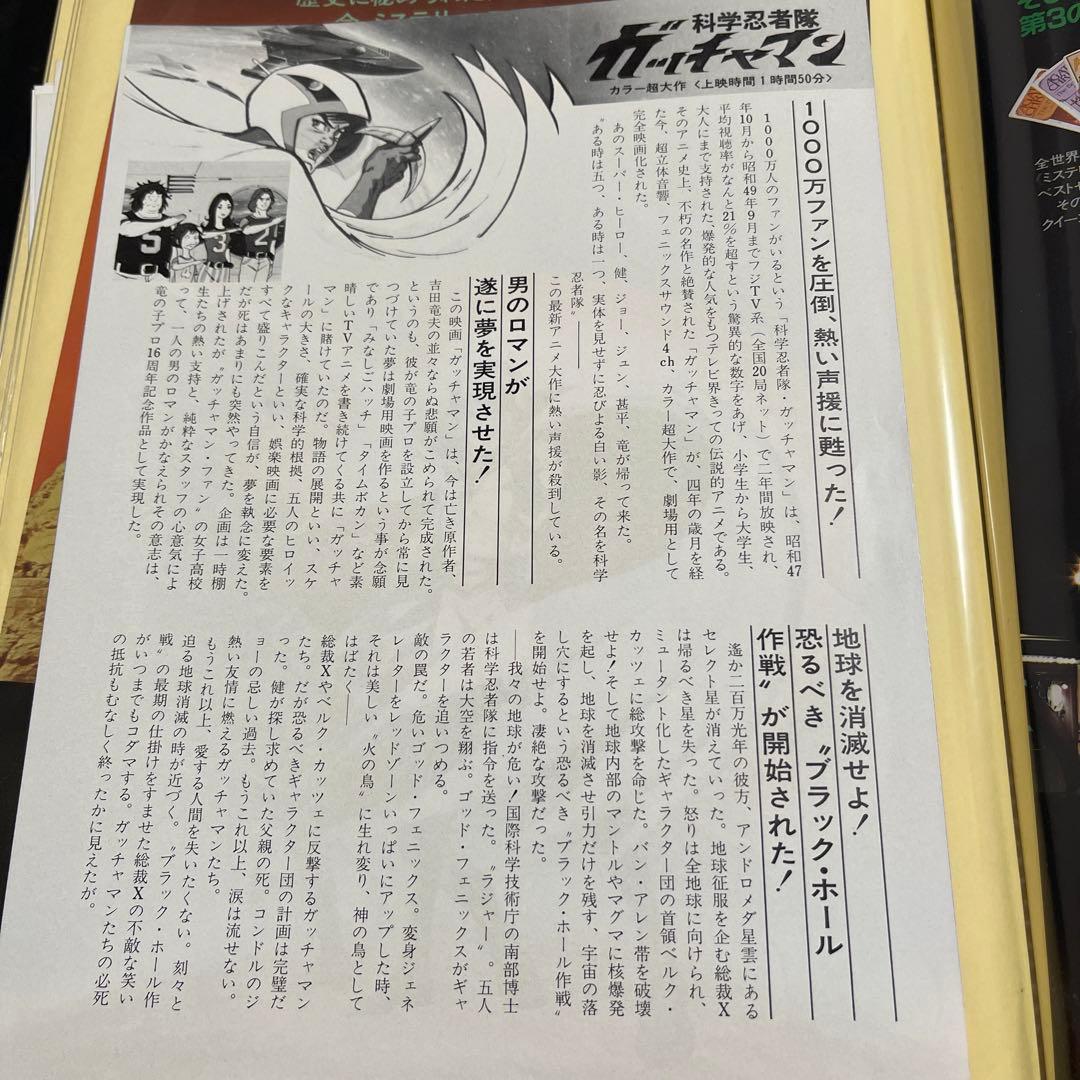 科学忍者隊
ガッチャマン
カラー超大作〈上映時間1時間50分〉
1000万ファンを圧倒、熱い声援に甦った!
1000万人のファンがいるという「科学忍者隊・ガッチャマン」は、昭和47
年10月から昭和49年9月までフジTV系(全国20局ネット)で二年間放映され、
平均視聴率がなんと21%を超すという驚異的な数字をあげ、小学生から大学生、
大人にまで支持された爆発的な人気をもつテレビ界きっての伝説的アニメである。
そのアニメ史上、不朽の名作と絶賛された「ガッチャマン」が、四年の歳月を経
た今、超立体音響、フェニックスサウンド4ch、カラー超大作で、劇場用として
完全映画化された。
あのスーパー・ヒーロー、健、ジョー、ジュン、甚平、竜が帰って来た。
〝ある時は五つ、ある時は一つ、実体を見せずに忍びよる白い影、その名を科学
忍者隊〟――
この最新アニメ大作に熱い声援が殺到している。
男のロマンが
遂に夢を実現させた!
この映画「ガッチャマン」は、今は亡き原作者、
吉田竜夫の並々ならぬ悲願がこめられて完成された。
というのも、彼が竜の子プロを設立してから常に見
つづけていた夢は劇場用映画を作るという事が念願
であり「みなしごハッチ」「タイムボカン」など素
晴しいTVアニメを書き続けてくる共に「ガッチャ
マン」に賭けていたのだ。物語の展開といい、スケ
ールの大きさ、確実な科学的根拠、五人のヒロイッ
クなキャラクターといい、娯楽映画に必要な要素を
すべて盛りこんだという自信が、夢を執念に変えた。
だが死はあまりにも突然やってきた。企画は一時棚
上げされたが〝ガッチャマン・ファン〟の女子高校
生たちの熱い支持と、純粋なスタッフの心意気によ
って、一人の男のロマンがかなえられその意志は、
竜の子プロ16周年記念作品として実現した。
地球を消滅せよ!
恐るべき〝ブラック・ホール
作戦〟が開始された!
遙か二百万光年の彼方、アンドロメダ星雲にある
セレクト星が消えていった。地球征服を企む総裁X
は帰るべき星を失った。怒りは全地球に向けられ、
ミュータント化したギャラクター団の首領ベルク・
カッツェに総攻撃を命じた。バン・アレン帯を破壊
せよ!そして地球内部のマントルやマグマに核爆発
を起し、地球を消滅させ引力だけを残す、宇宙の落
し穴にするという恐るべき〝ブラック・ホール作戦〟
を開始せよ。凄絶な攻撃だった。
――我々の地球が危い!国際科学技術庁の南部博士
は科学忍者隊に指令を送った。〝ラジャー〟。五人
の若者は大空を翔ぶ。ゴッド・フェニックスがギャ
ラクターを追いつめる。
敵の罠だ。危いゴッド・フェニックス。変身ジェネ
レーターをレッドゾーンいっぱいにアップした時、
それは美しい〝火の鳥〟に生れ変り、神の鳥として
はばたく――
総裁Xやベルク・カッツェに反撃するガッチャマン
たち。だが恐るべきギャラクター団の計画は完璧だ
った。健が探し求めていた父親の死。コンドルのジ
ョーの忌しい過去。もうこれ以上、涙は流せない。
熱い友情に燃えるガッチャマンたち。
もうこれ以上、愛する人間を失いたくない。刻々と
迫る地球消滅の時が近づく。〝ブラック・ホール作
戦〟の最期の仕掛けをすませた総裁Xの不敵な笑い
がいつまでもコダマする。ガッチャマンたちの必死
の抵抗もむなしく終ったかに見えたが。
第3の
全世界
ミステリ
ベストセ
その
クイー